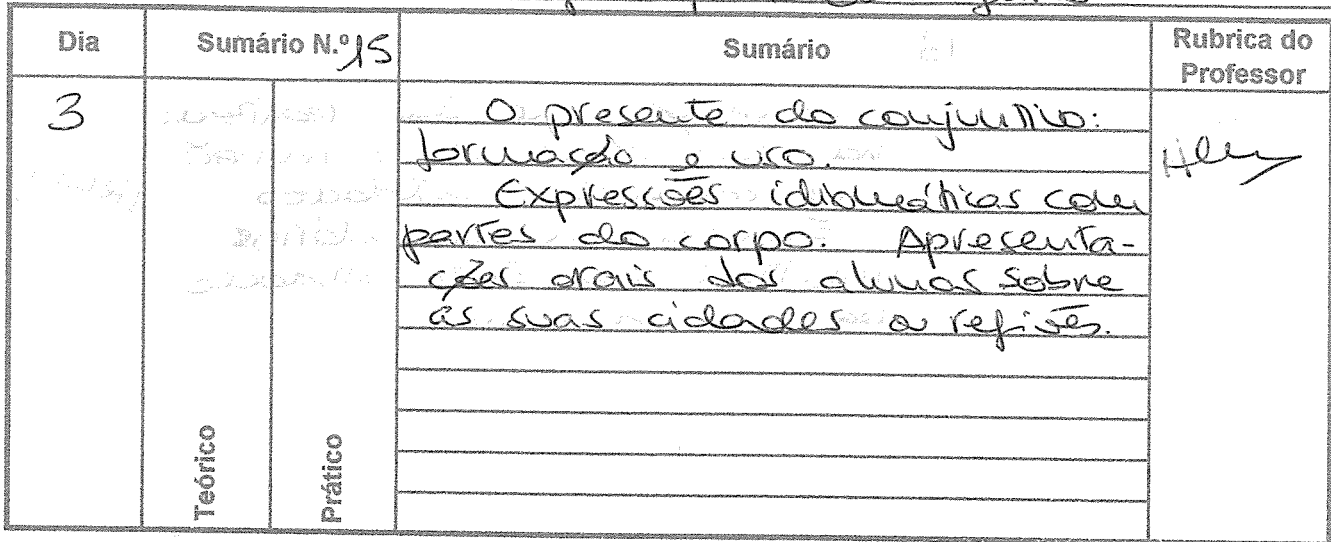 Dia Sumário N.º 15 Sumário Rubrica do Professor
3
O presente do conjuntivo:
formação e uso.
Expressões idiomáticas com
partes do corpo. Apresenta-
ções orais dos alunos sobre
as suas cidades e regiões.
Teórico
Prático